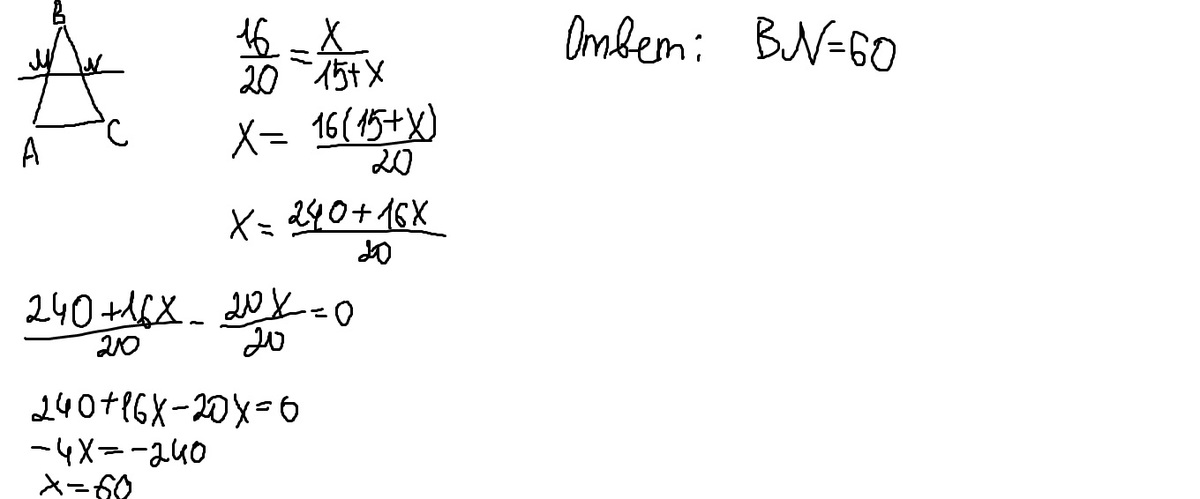 B
M N
A C
16/20 = x/(15+x)
x = 16(15+x)/20
x = (240+16x)/20
(240+16x)/20 - 20x/20 = 0
240+16x-20x=0
-4x=-240
x=60
Ответ: BN=60